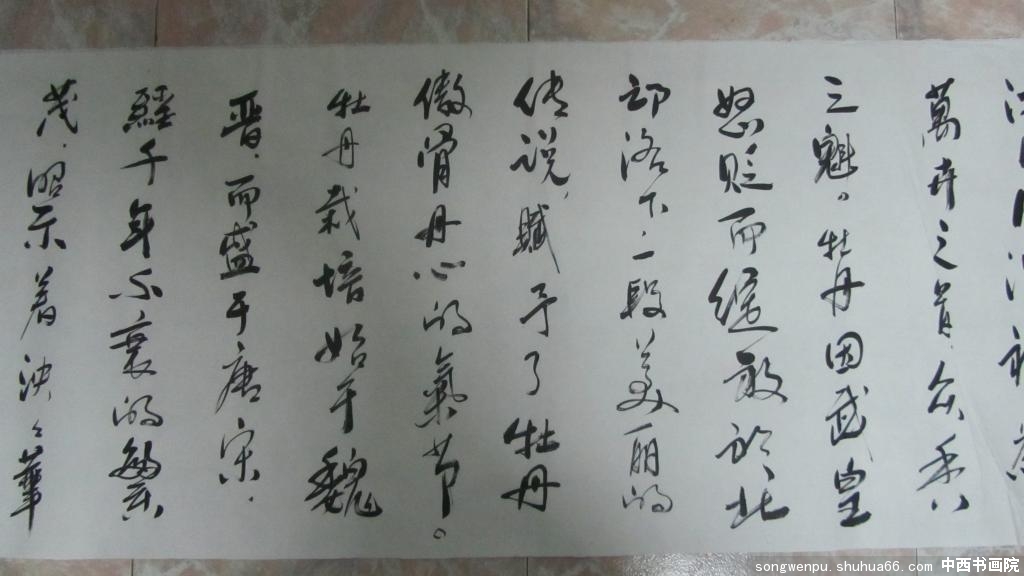 萬卉之首，众香
之魁。牡丹因武皇
怒贬而缓放於北
邙洛下，一段美丽的
传说，赋予了牡丹
傲骨丹心的氣节。
牡丹栽培始于魏
晋，而盛于唐宋，
經千年不衰的繁
茂，昭示着泱泱華
songwenpu.shuhua66.com 中西书画院